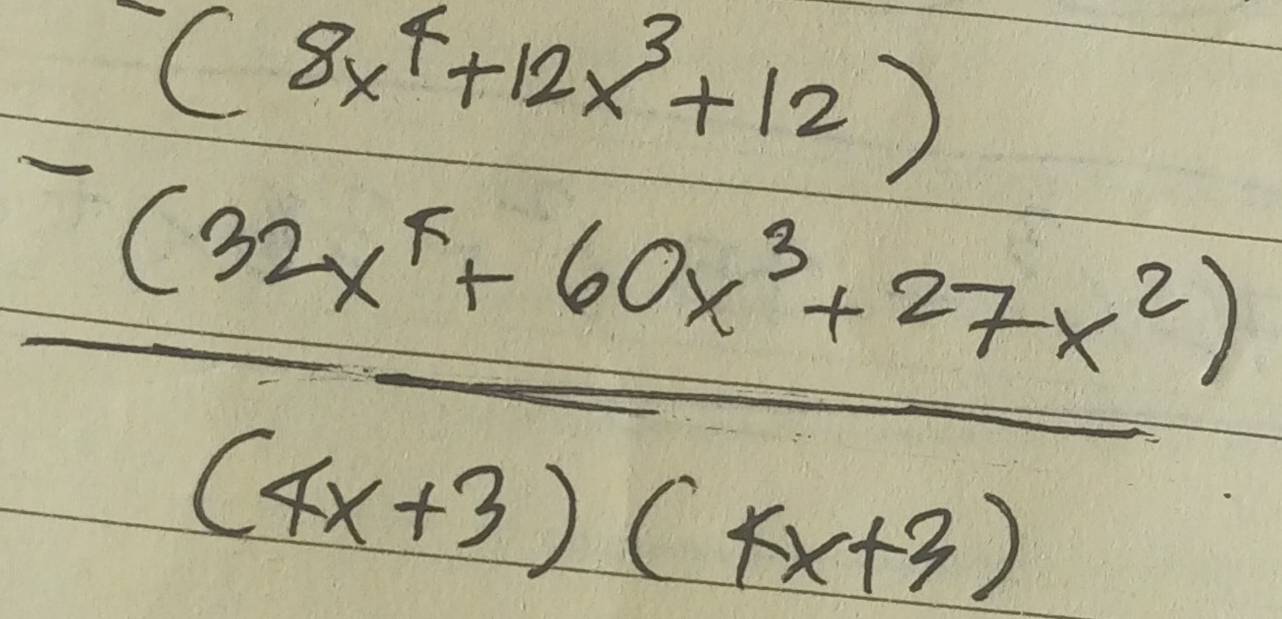 -(8x⁴+12x³+12)
-(32x⁴+60x³+27x²)
(4x+3)(4x+3)